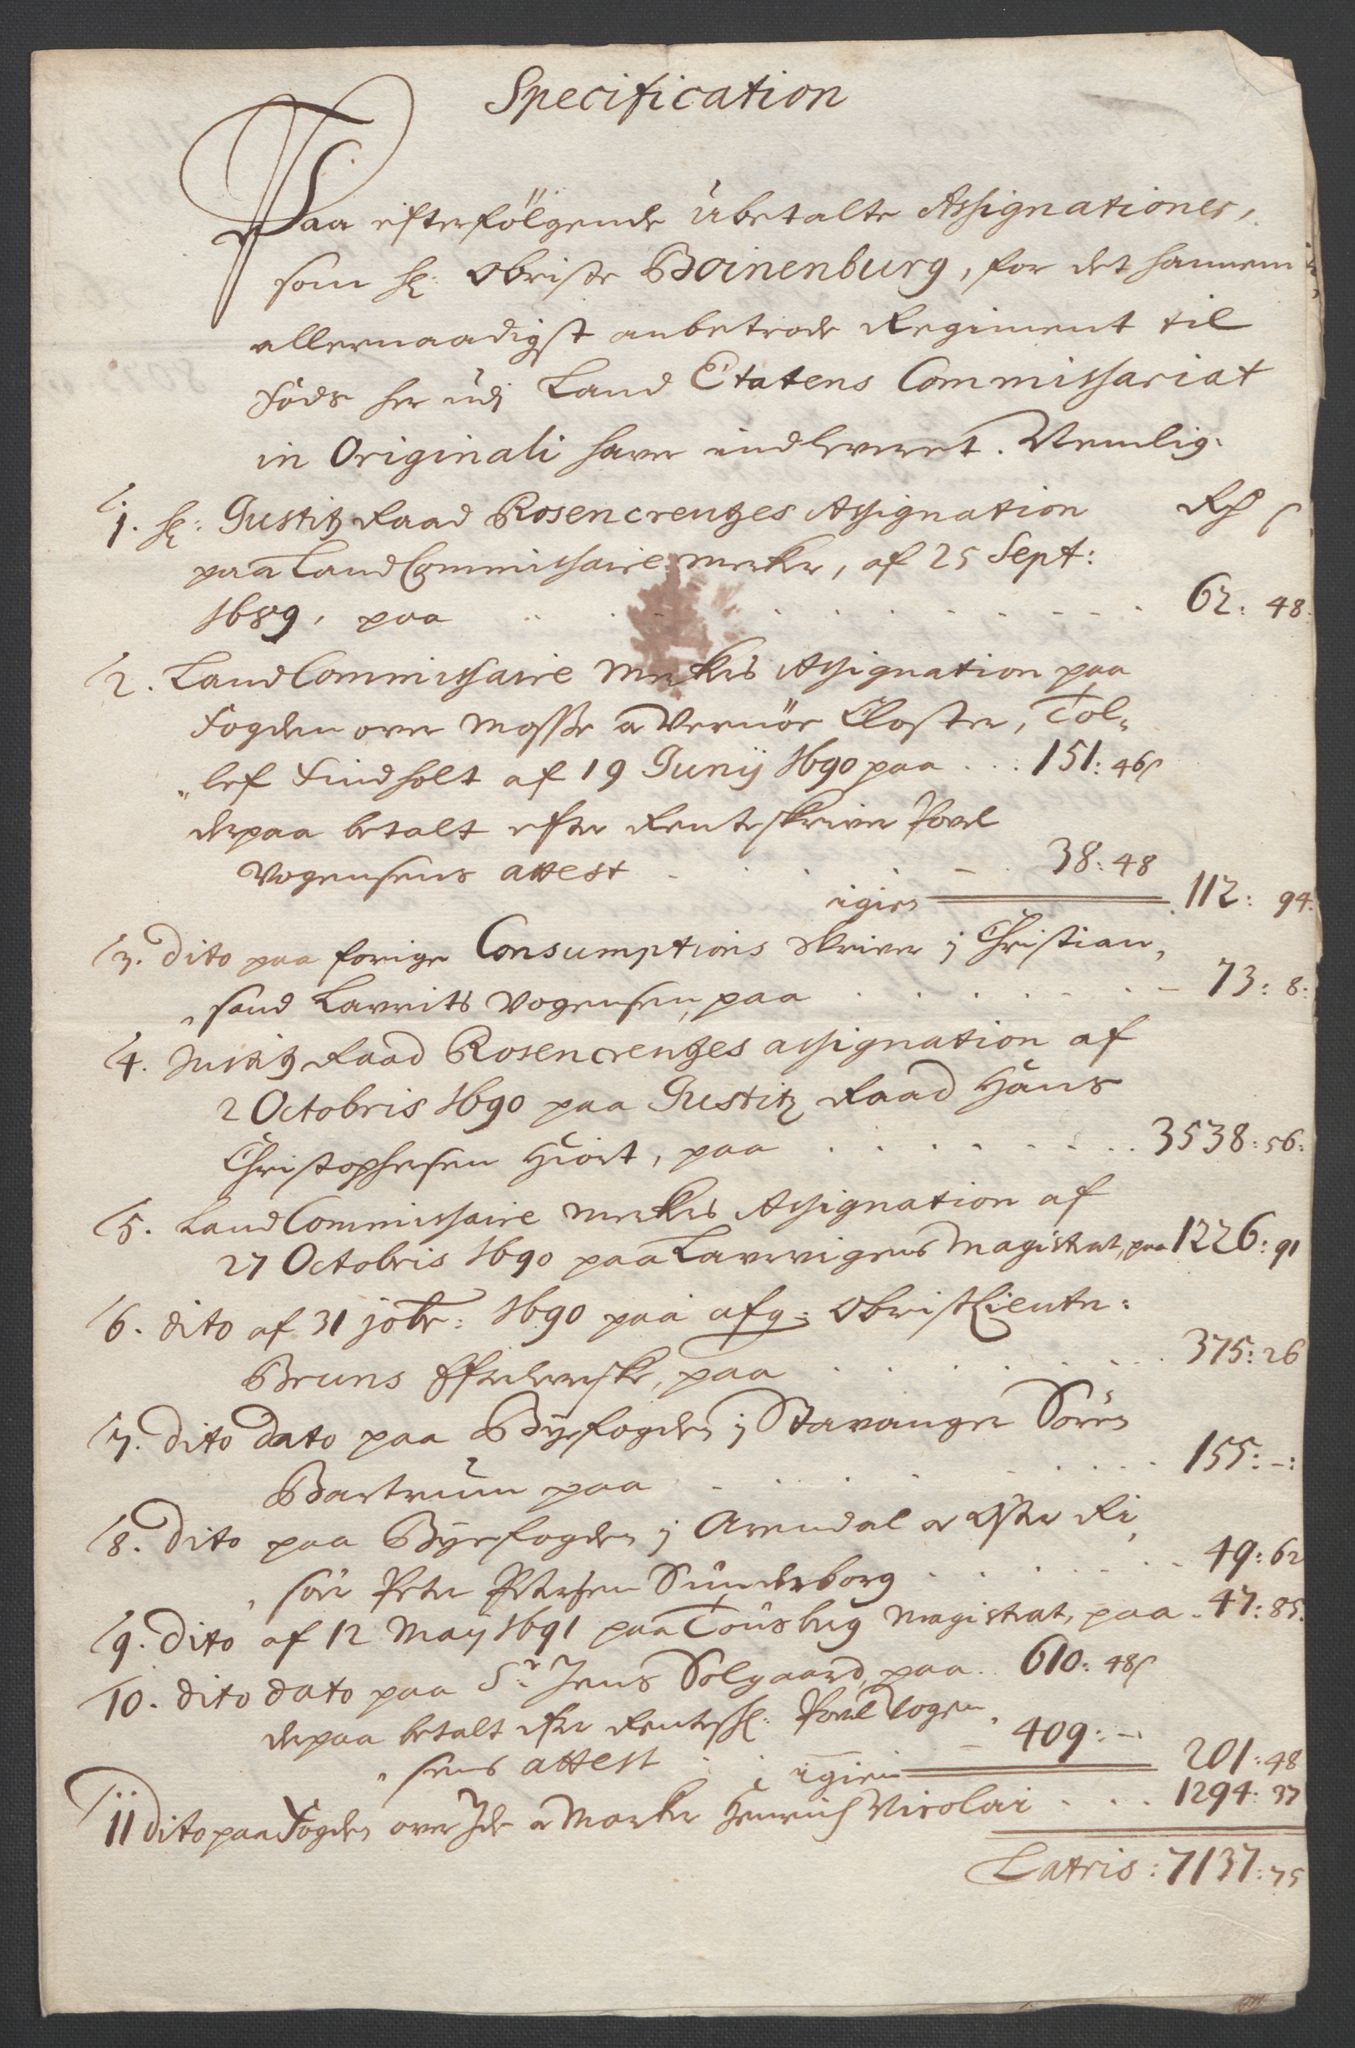 Specification
Paa efterfölgende ubetalte Assignationer,
som hr: Obriste Boinenburg, for det hannem
allernaadigst anbetrode Regiment til
fods her udj Land Etatens Commissariat
in Originali haver indleveret. Nemlig:
1. hr: Justitz Raad Rosencrentzes Assignation Rdr s
paa LandCommissaire Merker, af 25 Sept:
1689, paa . . . . . . . 62: 48:
2. LandCommissaire Merkers Assignation paa
Fogden over Mosse a Vernöe Closter, Tol-
lef Findholt af 19 Junij 1690 paa . . . 151: 46s
derpaa betalt efter Renteskriver Povel
Vogensens attest . . . 38: 48
igien 112: 94:
3. dito paa forige Consumptions Skriver j Christian,
sand Lavrits Vogensen, paa . . . . . . 73: 8:
4. Justitz Raad Rosencrentzes assignation af
2 Octobris 1690 paa Justitz Raad Hans
Christophersen Hiort, paa . . . . . . . 3538: 56:
5. LandCommissaire Merkers Assignation af
27 Octobris 1690 paa Laurvigens Magistrat, paa 1226: 91
6. dito af 31 jobr: 1690 paa afg: ObristLieutn:
Bruns Efterleverske, paa . . . . . . . 375: 26
7. dito dato paa Byefogden j Stavanger Sören
Bartrum paa . . . . . . 155: -:
8. dito paa Byefogden j Arendal a Öster Ri,
söer Peter Petersen Sunderborg . . . . . 49: 62
9. dito af 12 Maij 1691 paa Tönsberg Magistrat, paa . 47: 85.
10. dito dato paa Sr Jens Solgaard, paa . . 610: 48s
derpaa betalt efter Rentesk: Povel Vogen,
sens attest . . . 409: -
igien 201: 48
11 dito paa Fogden over Ide a Marker Henrich Nicolai . . . 1294: 37
Latris: 7137: 75